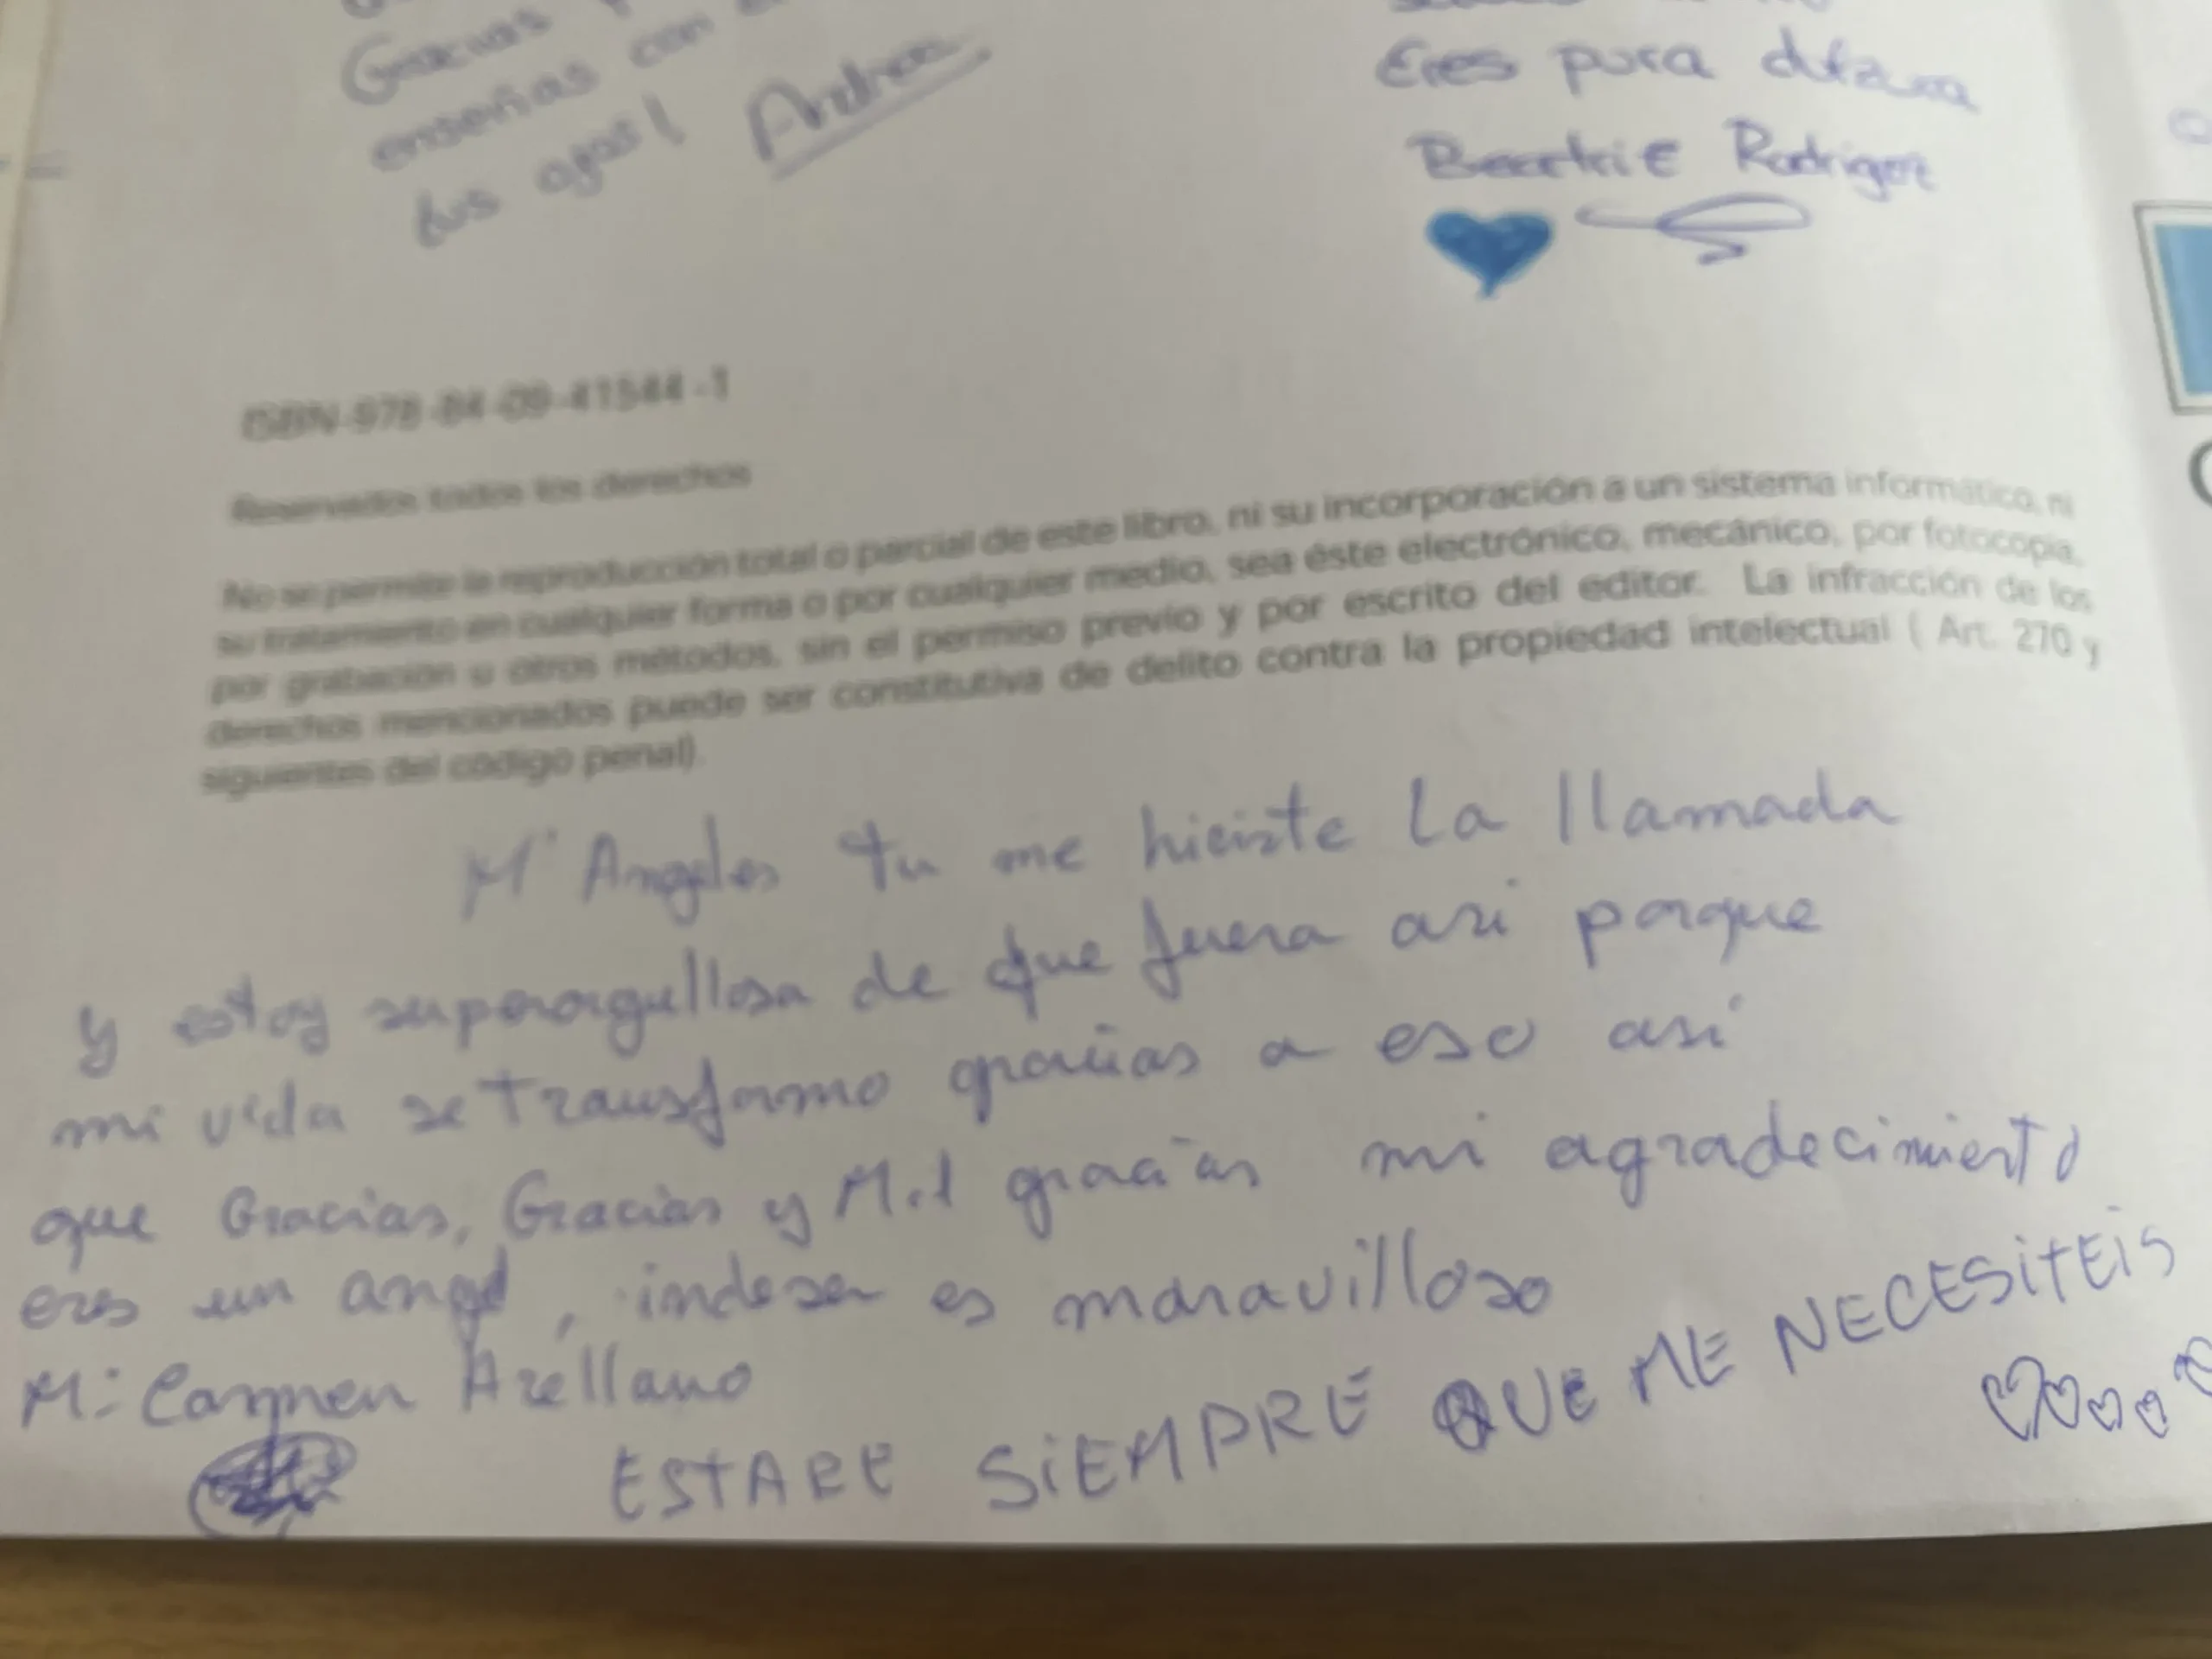 Gracias
enseñas con
tus ojos! Andrea
Eres pura dulzura
Beatriz Rodriguez
ISBN-978-84-09-41544-1
Reservados todos los derechos
No se permite la reproducción total o parcial de este libro, ni su incorporación a un sistema informático, ni
su tratamiento en cualquier forma o por cualquier medio, sea éste electrónico, mecánico, por fotocopia,
por grabación u otros métodos, sin el permiso previo y por escrito del editor. La infracción de los
derechos mencionados puede ser constitutiva de delito contra la propiedad intelectual ( Art. 270 y
siguientes del código penal).
Mª Angeles tu me hiciste la llamada
y estoy superorgullosa de que fuera asi porque
mi vida se transformo gracias a eso así
que Gracias, Gracias y Mil gracias mi agradecimiento
eres un angel, indesen es maravilloso
Mª Carmen Arellano
ESTARE SiEMPRE QUE ME NECESiTEiS